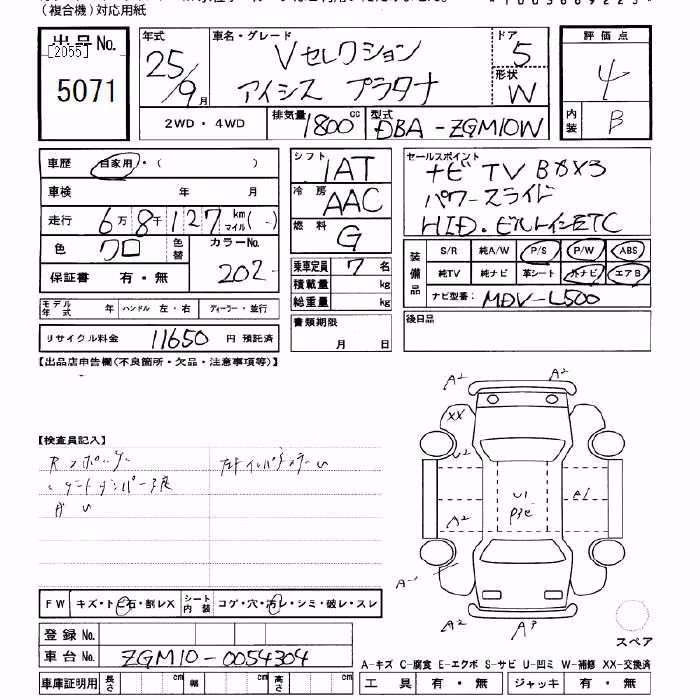 （複合機）対応用紙
出品No.
[2055]
5071
年式
25/9月
車名・グレード
Vセレクション
アイシス プラタナ
ドア
5
形状
W
評価点
4
内装
B
2WD・4WD
排気量
1800cc
型式
DBA-ZGM10W
車歴
自家用・( )
車検
年 月
走行
6万8千127km マイル(-)
色
クロ
色替
カラーNo.
202
保証書
有・無
モデル年式
年
ハンドル
左・右
ディーラー・並行
リサイクル料金
11650円 預託済
シフト
IAT
冷房
AAC
燃料
G
乗車定員
7名
積載量
kg
総重量
kg
書類期限
月 日
セールスポイント
ナビ TV Bカメラ
パワースライド
HID.ビルトインETC
装備品
S/R
純A/W
P/S
P/W
ABS
純TV
純ナビ
革シート
外ナビ
エアB
ナビ型番:
MDV-L500
後日品
【出品店申告欄(不良箇所・欠品・注意事項等)】
【検査員記入】
A2
A2
XX
U2
A2
U1
A1
A2
A3
FW
キズ・トビ石・割レX
シート内装
コゲ・穴・汚レ・シミ・破レ・スレ
登録No.
車台No.
ZGM10-0054304
スペア
A-キズ C-腐食 E-エクボ S-サビ U-凹ミ W-補修 XX-交換済
車庫証明用
長さ
cm
幅
cm
高さ
cm
工具
有・無
ジャッキ
有・無